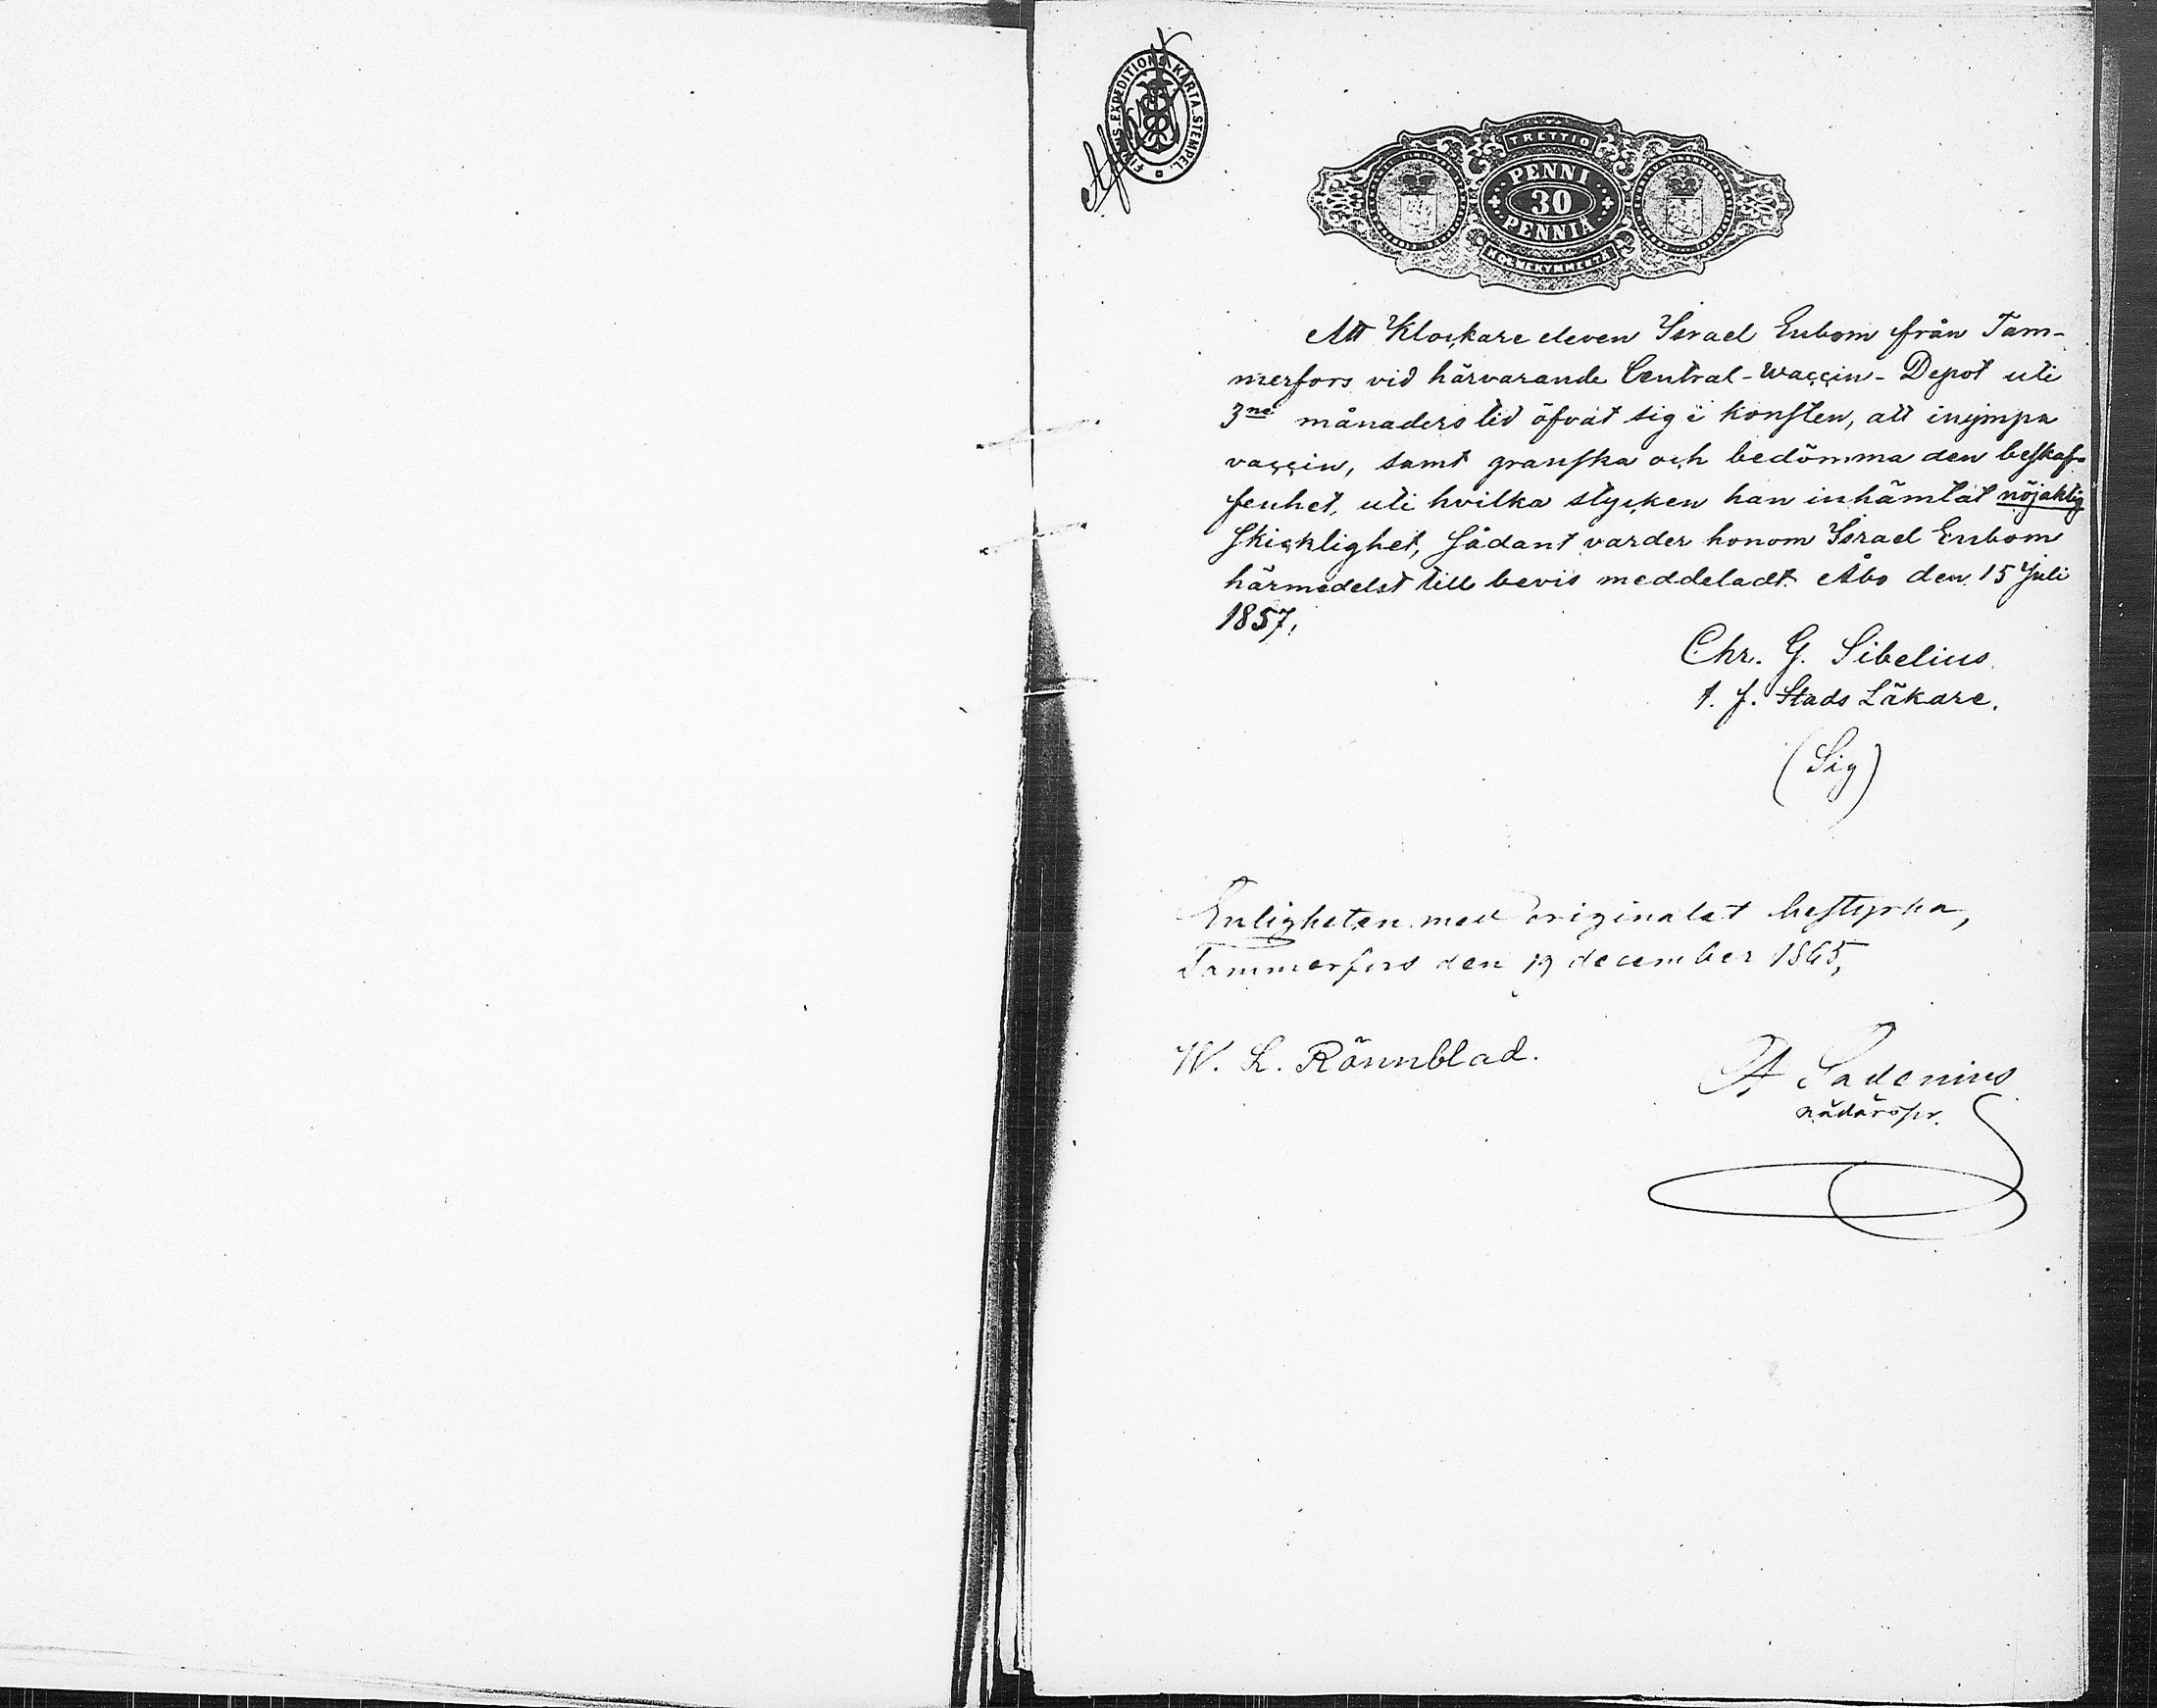 FINANS-EXPEDITIONS KARTA-STEMPEL.
TRETTIO
PENNI
30
PENNIÄ
KOLMEKYMMENTÄ
Att Klockare eleven Israel Enbom från Tam-
merfors vid härvarande Central-Waccin-Depot uti
3ne månaders tid öfvat sig i konsten, att inympa
vaccin, samt granska och bedömma den beskaf-
fenhet, uti hvilka stycken han inhämtat nöjaktig
skicklighet, sådant varder honom Israel Enbom
härmedelst till bevis meddeladt. Åbo den 15 Juli
1857,
Chr. G. Sibelius.
t. f. Stads Läkare.
(Sig)
Enligheten med originalet bestyrka,
Tammerfors den 19 december 1865,
W. L. Rönnblad.
Sadenius